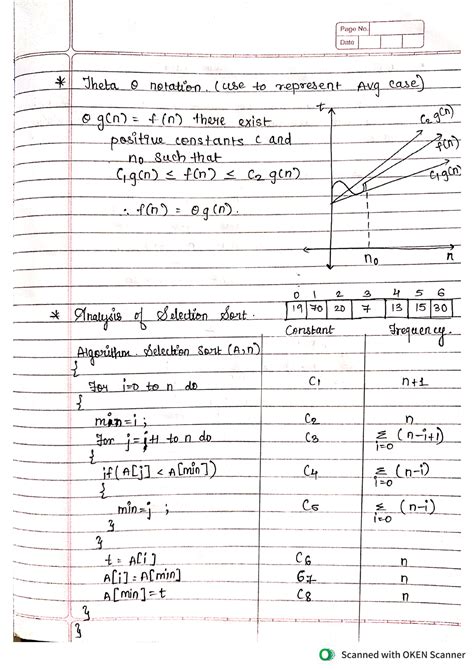 Page No.
Date
* Theta θ notation. (use to represent Avg case)
θ g(n) = f(n) there exist
positive constants c and
n₀ such that
C₁g(n) ≤ f(n) ≤ C₂ g(n)
∴ f(n) = θ g(n).
t
C₂ g(n)
f(n)
C₁g(n)
n₀
n
0 1 2 3 4 5 6
19 70 20 7 13 15 30
* Analysis of Selection Sort.
Constant Frequency.
Algorithm. Selection Sort (A,n)
{
For i=0 to n do C₁ n+1
{
min=i ; C₂ n
For j=j+1 to n do C₃ Σ i=0 (n-i+1)
{
if(A[j] < A[min]) C₄ Σ i=0 (n-i)
{
min=j ; C₅ Σ i=0 (n-i)
}
}
t = A[i] C₆ n
A[i] = A[min] C₇ n
A[min] = t C₈ n
}
}
Scanned with OKEN Scanner